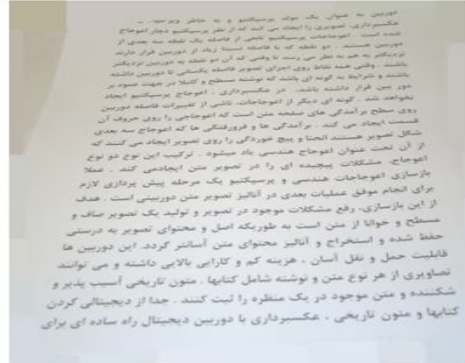 دوربین به عنوان یک مولد پرسپکتیو و به خاطر
عکسبرداری، تصویری را ایجاد می کند که از نظر پرسپکتیو دچار اعوجاج
شده است . اعوجاجات پرسپکتیو تابعی از فاصله یک نقطه سه بعدی از
دوربین هستند . دو نقطه که با فاصله نسبتا زیاد از دوربین قرار دارند
نزدیکتر به هم به نظر می رسند تا وقتی که آن دو نقطه به دوربین نزدیکتر
باشند . وقتی همه نقاط روی اجزای تصویر فاصله یکسانی تا دوربین داشته
باشند و شرایط به گونه ای باشد که نوشته مسطح و کاملا در جهت عمود بر
دور بین قرار داشته باشد، در عکسبرداری ، اعوجاج پرسپکتیو ایجاد
نخواهد شد . گونه ای دیگر از اعوجاجات، ناشی از تغییرات فاصله دوربین
روی سطح برآمدگی های صفحه متن است که اعوجاجی را روی حروف آن
قسمت ایجاد می کند . برآمدگی ها و فرورفتگی ها که اعوجاج سه بعدی
شکل تصویر هستند انحنا و پیچ خوردگی را روی تصویر ایجاد می کنند که
از آن تحت عنوان اعوجاج هندسی یاد میشود . ترکیب این نوع دو نوع
اعوجاج، مشکلات پیچیده ای را در تصویر متن ایجادمی کند . عملا
بازسازی اعوجاجات هندسی و پرسپکتیو یک مرحله پیش پردازی لازم
برای انجام موفق عملیات بعدی در آنالیز تصویر متن دوربینی است . هدف
از این بازسازی، رفع مشکلات موجود در تصویر و تولید یک تصویر صاف و
مسطح و خوانا از متن است به طوریکه اصل و محتوای تصویر به درستی
حفظ شده و استخراج و آنالیز محتوای متن آسانتر گردد. این دوربین ها
قابلیت حمل و نقل آسان ، هزینه کم و کارایی بالایی داشته و می توانند
تصاویری از هر نوع متن و نوشته شامل کتابها . متون تاریخی آسیب پذیر و
شکننده و متن موجود در یک منظره را ثبت کنند . جدا از دیجیتالی کردن
کتابها و متون تاریخی ، عکسبرداری با دوربین دیجیتال راه ساده ای برای